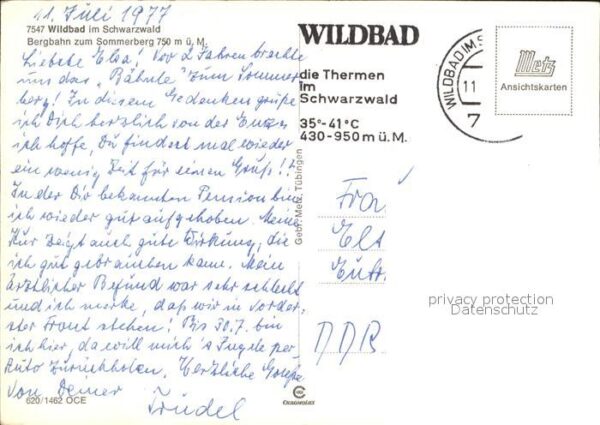 11. Juli 1977
7547 Wildbad im Schwarzwald
Bergbahn zum Sommerberg 750 m ü. M.
Liebste Elsa! Vor 2 Jahren brachte
uns das "Bähnle" zum Sommer
berg! In diesem Gedenken grüße
ich Dich herzlich von der Enz u.
ich hoffe, Du findest mal wieder
ein wenig Zeit für einen Gruß!!
In der Dir bekannten Pension bin
ich wieder gut aufgehoben. Meine
Kur zeigt auch gute Wirkung, die
ich gut gebrauchen kann. Mein
ärztlicher Befund war sehr schlecht
und ich merke, daß wir in vorder,
ster Front stehen! Bis 30.7. bin
ich hier, da will mich 's Ingele per
Auto zurückholen. Herzliche Grüße
von Deiner
Trudel
620/1462 OCE
Gebr. Metz, Tübingen
CEKACOLOR
WILDBAD
die Thermen
im
Schwarzwald
35°-41°C
430-950 m ü. M.
WILDBAD IM S
11
7
Metz
Ansichtskarten
Frau
DDR
privacy protection
Datenschutz